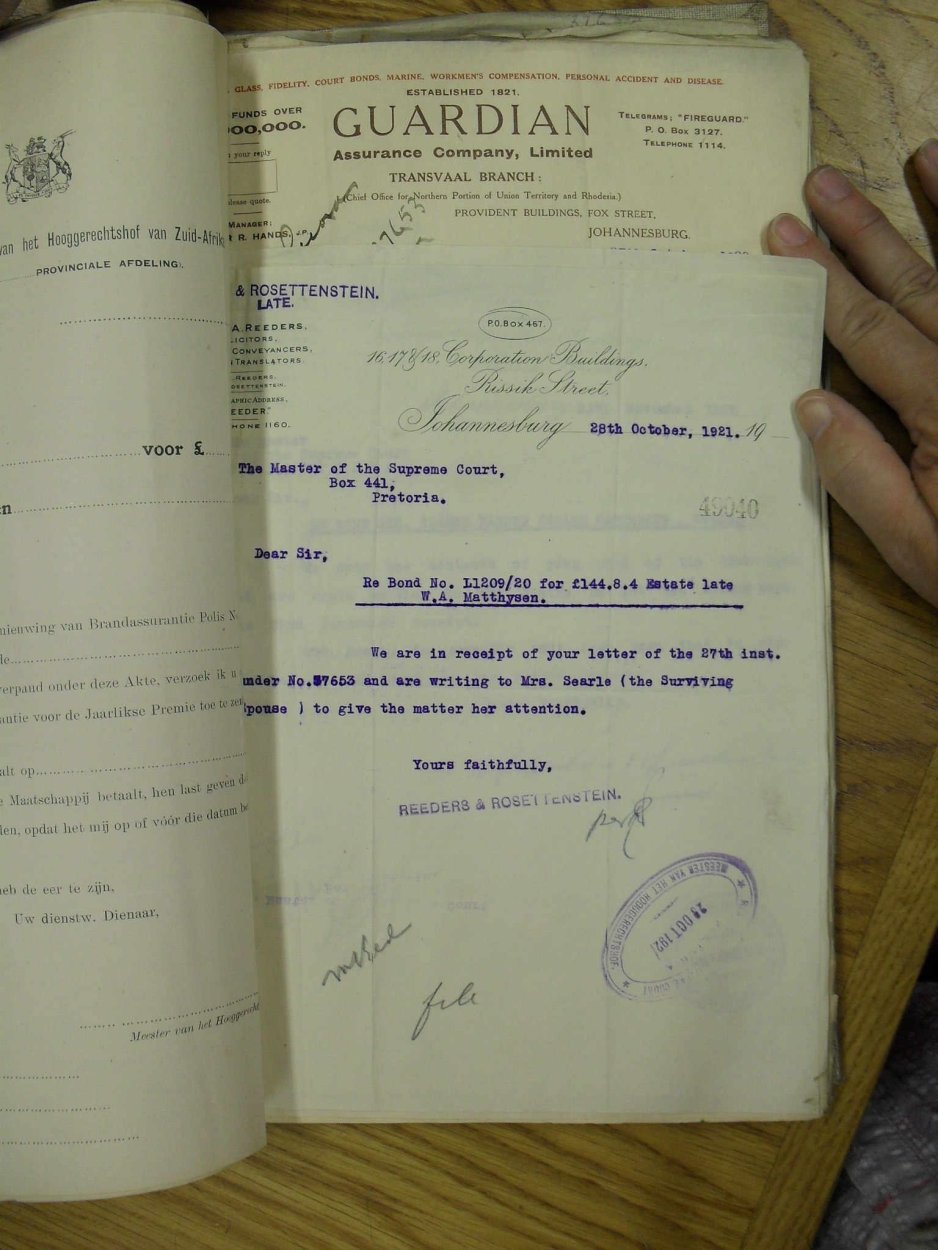 van het Hooggerechtshof van Zuid-Afrik
PROVINCIALE AFDELING).
voor £
n
nieuwing van Brandassurantie Polis N
de
verpand onder deze Akte, verzoek ik u
antie voor de Jaarlikse Premie toe te zen
alt op
e Maatschappij betaalt, hen last geven d
den, opdat het mij op of vóór die datum be
heb de eer te zijn,
Uw dienstw. Dienaar,
Meester van het Hooggerecht
GLASS, FIDELITY, COURT BONDS, MARINE, WORKMEN'S COMPENSATION, PERSONAL ACCIDENT AND DISEASE.
ESTABLISHED 1821.
FUNDS OVER
000,000.
GUARDIAN
Assurance Company, Limited
TELEGRAMS; "FIREGUARD."
P. O. BOX 3127.
TELEPHONE 1114.
n your reply
please quote.
TRANSVAAL BRANCH:
(Chief Office for Northern Portion of Union Territory and Rhodesia.)
PROVIDENT BUILDINGS, FOX STREET,
JOHANNESBURG.
MANAGER:
R. HANDS, J.P.
7653
& ROSETTENSTEIN.
LATE.
A. REEDERS,
LICITORS,
CONVEYANCERS,
TRANSLATORS
REEDERS.
OSETTENSTEIN.
APHIC ADDRESS,
EEDER."
HONE 1160.
P.O. Box 467.
16, 17 & 18, Corporation Buildings,
Rissik Street,
Johannesburg 28th October, 1921. 19
The Master of the Supreme Court,
Box 441,
Pretoria.
49040
Dear Sir,
Re Bond No. L1209/20 for £144.8.4 Estate late
W.A. Matthysen.
We are in receipt of your letter of the 27th inst.
under No.37653 and are writing to Mrs. Searle (the Surviving
Spouse ) to give the matter her attention.
Yours faithfully,
REEDERS & ROSETTENSTEIN.
per
MEESTER VAN HET HOOGGERECHTSHOF.
29 OCT 1921
noted
file